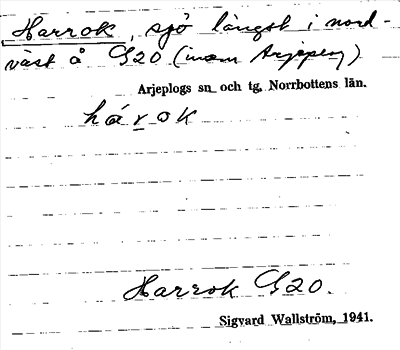 Harrok, sjö längst i nord-
väst å G20 (inom Arjeplog)
Arjeplogs sn och tg, Norrbottens län.
hárok
Harrok G20.
Sigvard Wallström, 1941.